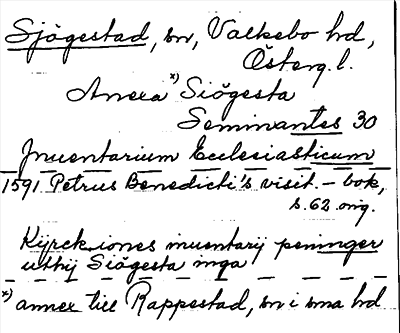 Sjögestad, sn, Valkebo hd,
Österg. l.
Anexa x) Siögesta
Seminantes 30
Inuentarium Ecclesiasticum
1591 Petrus Benedicti's visit. - bok,
s. 62 orig.
Kijrckiones inuentarij peninger
uthij Siögesta inga
x) annex till Rappestad, sn i sma hd